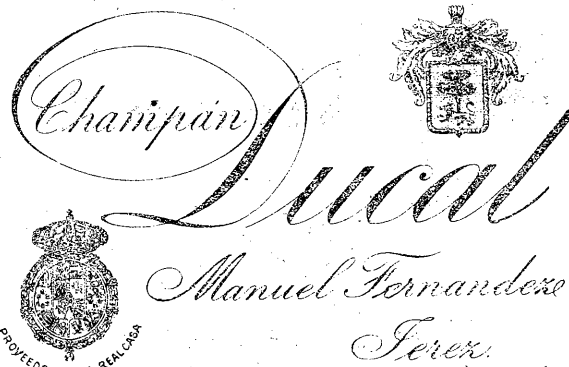 Champán
Ducal
Manuel Fernandez
Jerez.
REAL CASA